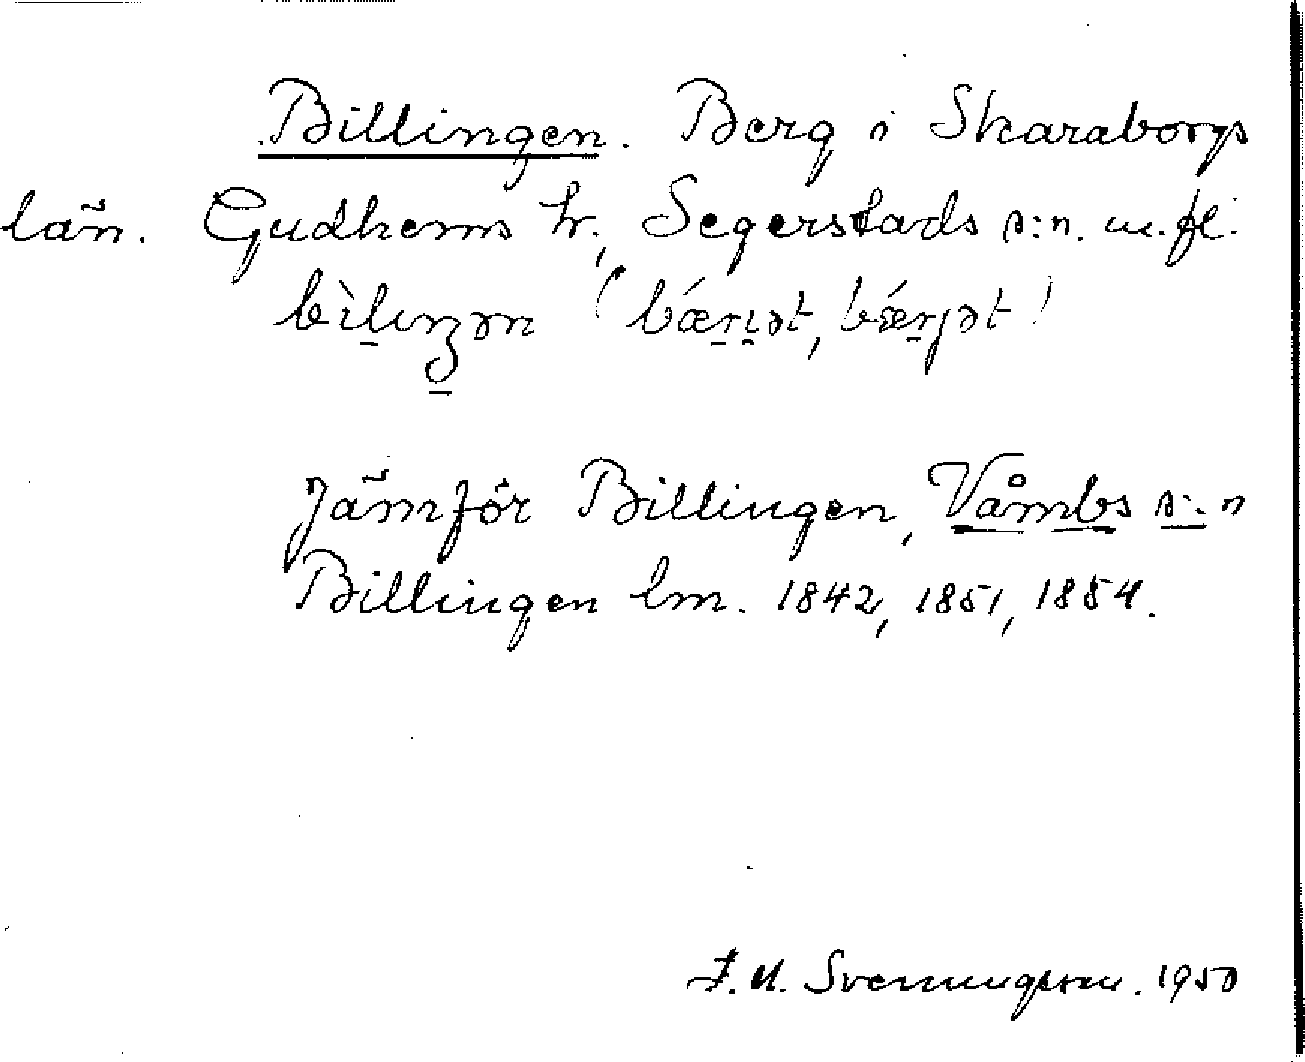 Billingen. Berg i Skaraborgs
län. Gudhems hr., Segerstads s:n. m.fl.
bìlıŋən (bǽṇı̣ət, bǽṇȷət)
Jämför Billingen, Våmbs s:n
Billingen lm. 1842, 1851, 1854.
J. A. Svenningsson. 1950